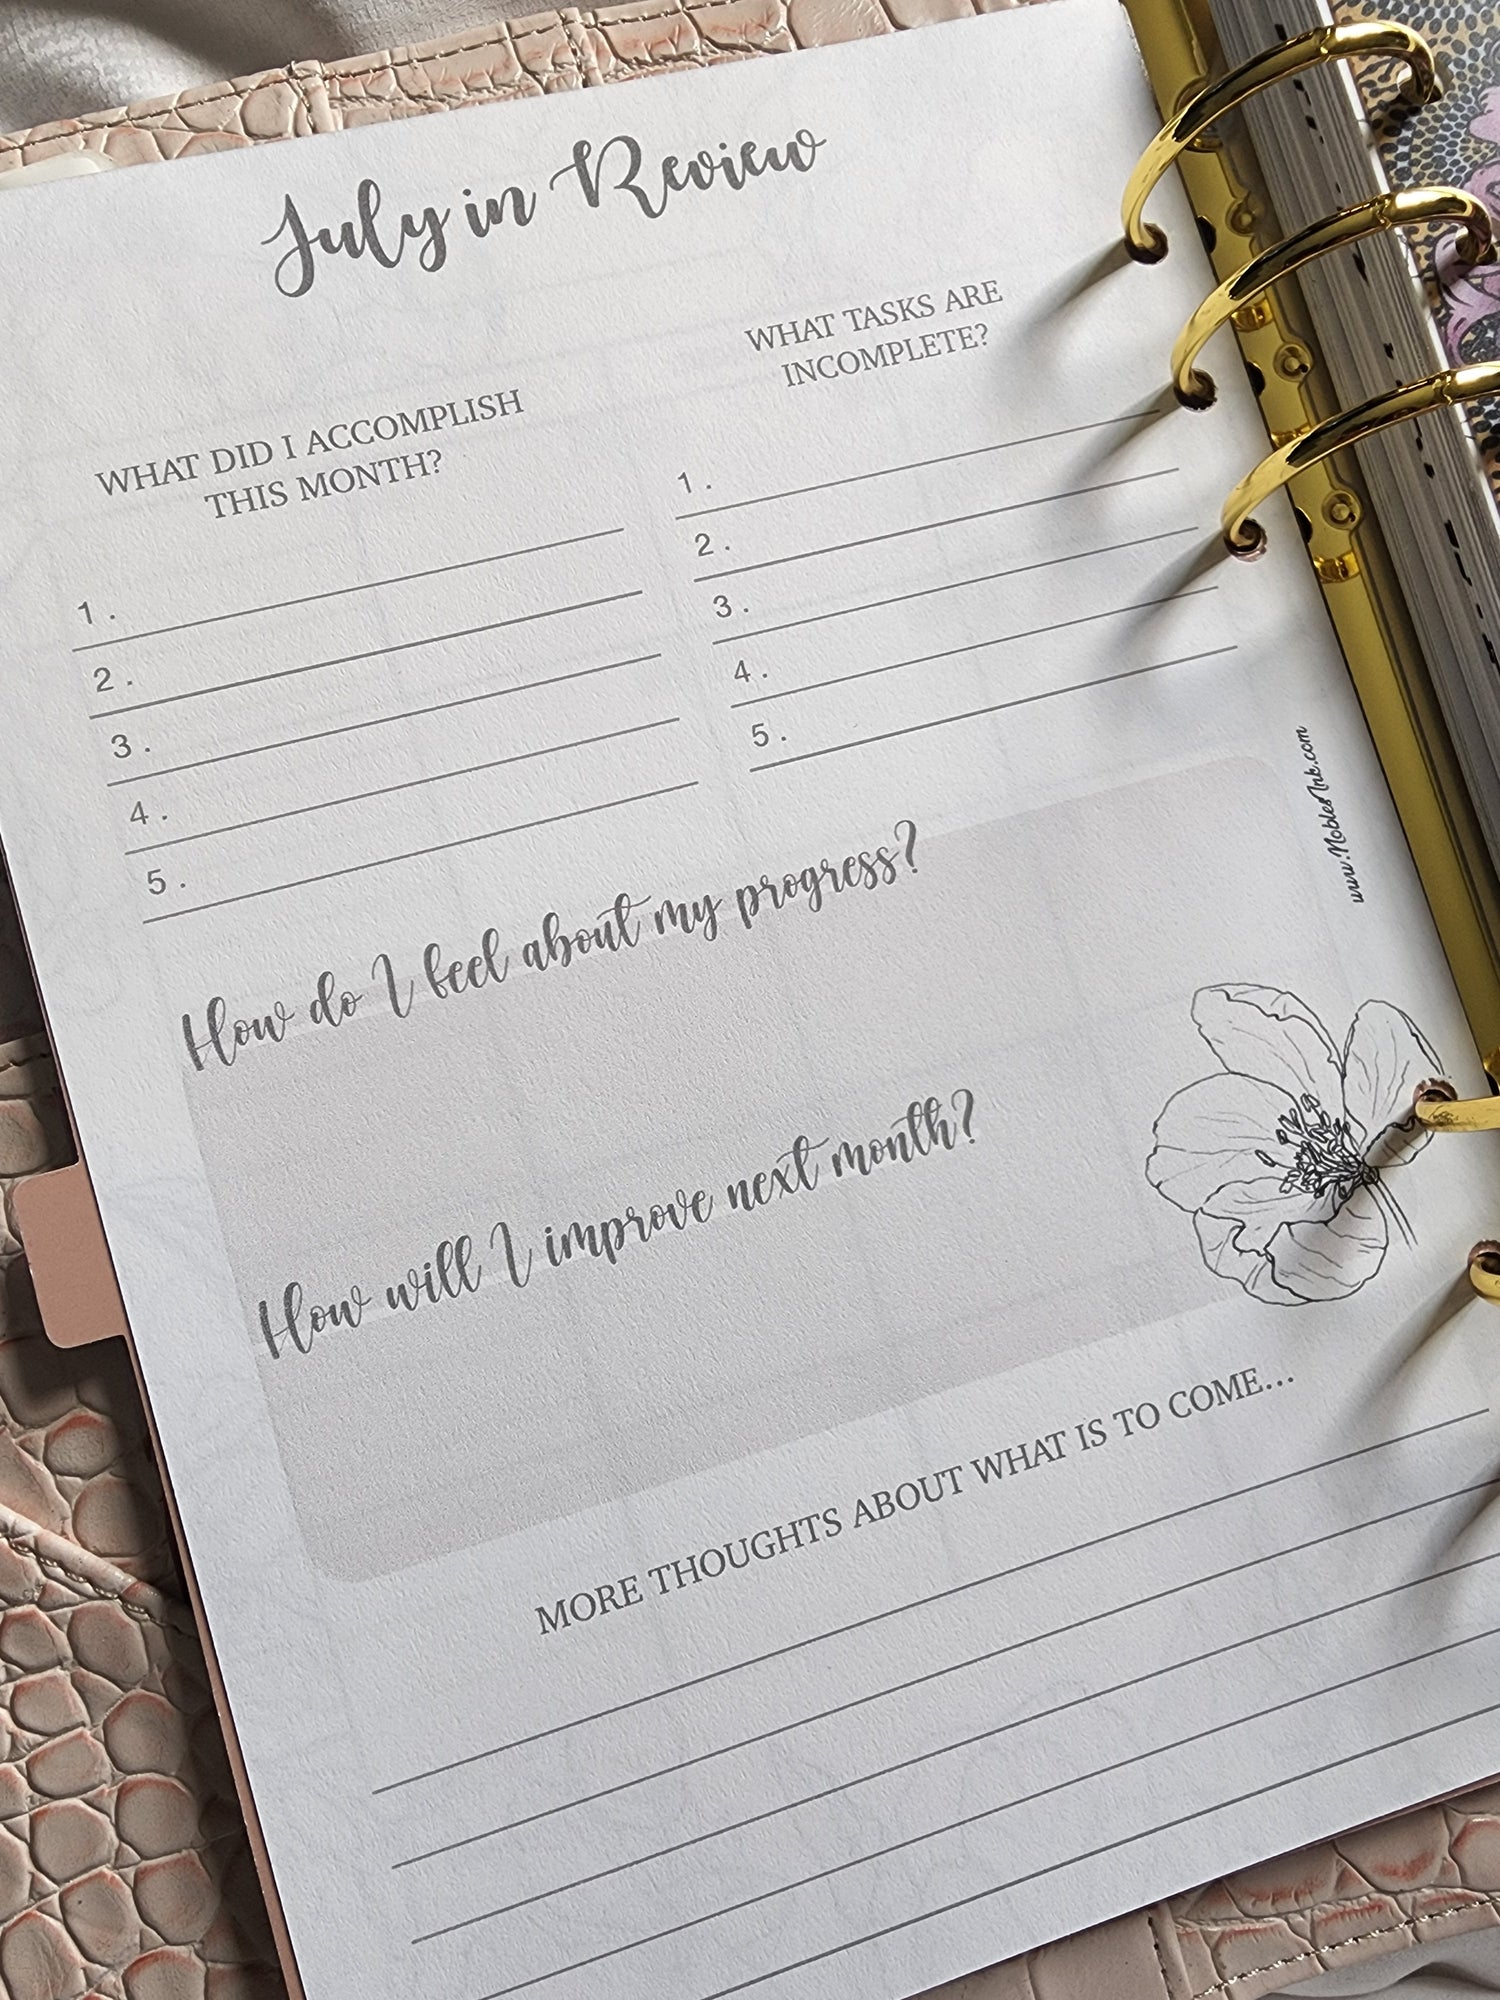 July in Review
WHAT DID I ACCOMPLISH
THIS MONTH?
1.
2.
3.
4.
5.
WHAT TASKS ARE
INCOMPLETE?
1.
2.
3.
4.
5.
How do I feel about my progress?
How will I improve next month?
MORE THOUGHTS ABOUT WHAT IS TO COME...
www.NoblesInk.com